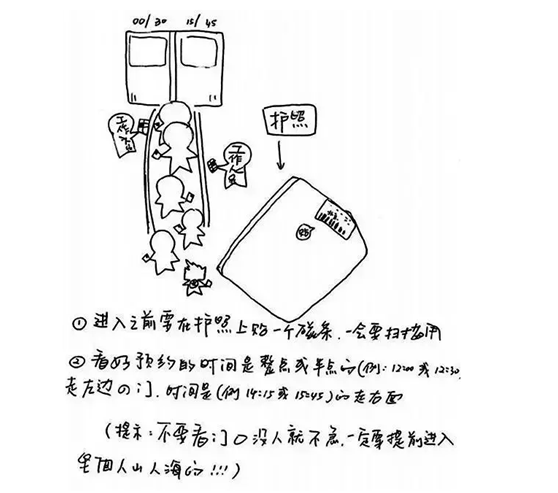 00/30 15/45
工作人员
工作人员
护照
① 进入之前需在护照上贴一个磁条,一会要扫描用
② 看好预约的时间是整点或半点的(例:12:00 或 12:30,
走左边の门,时间是(例14:15或15:45)的走右面
(提示:不要看门口没人就不急,一定要提前进入
里面人山人海的!!!)